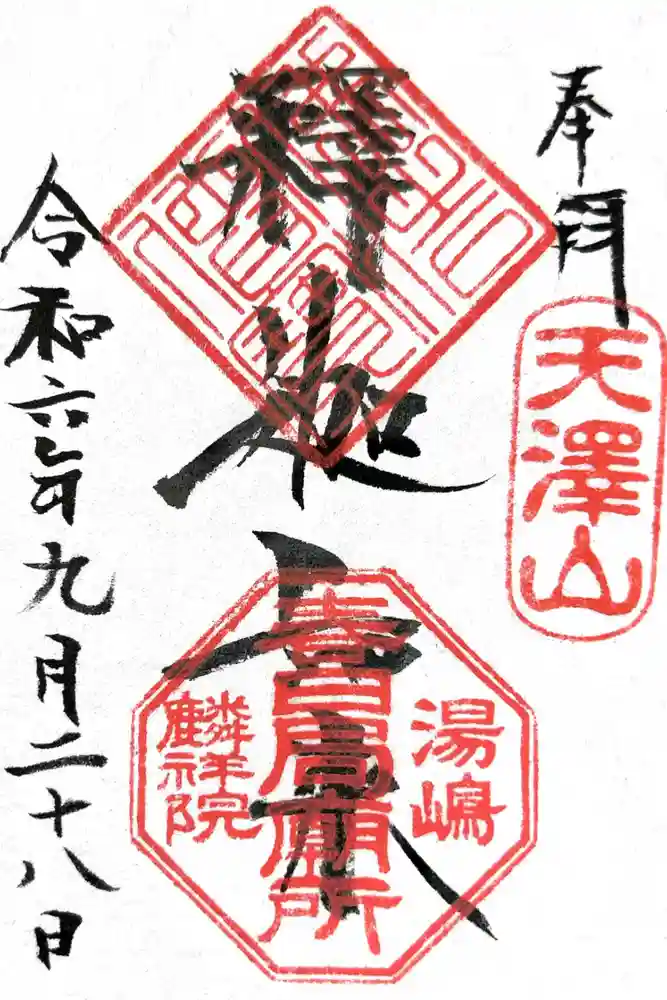 奉拝
天澤山
釋迦如来
湯嶋
春日局廟所
麟祥院
令和六年九月二十八日